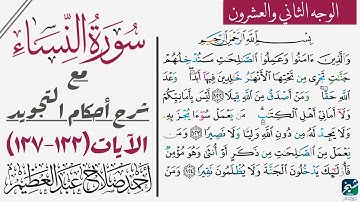 الوجه الثاني والعشرون
سُورَةُ النِّسَاء
مع
شرح أحكام التجويد
الآيات (١٢٢-١٢٧)
أحمد صلاح عبد العظيم
بِسْمِ اللَّهِ الرَّحْمَٰنِ الرَّحِيمِ
وَالَّذِينَ ءَامَنُوا وَعَمِلُوا الصَّٰلِحَٰتِ سَنُدْخِلُهُمْ
جَنَّٰتٍ تَجْرِي مِن تَحْتِهَا الْأَنْهَٰرُ خَٰلِدِينَ فِيهَا أَبَدًا وَعْدَ
اللَّهِ حَقًّا وَمَنْ أَصْدَقُ مِنَ اللَّهِ قِيلًا ١٢٢ لَّيْسَ بِأَمَانِيِّكُمْ
وَلَا أَمَانِيِّ أَهْلِ الْكِتَٰبِ مَن يَعْمَلْ سُوءًا يُجْزَ بِهِ
وَلَا يَجِدْ لَهُ مِن دُونِ اللَّهِ وَلِيًّا وَلَا نَصِيرًا ١٢٣ وَمَن
يَعْمَلْ مِنَ الصَّٰلِحَٰتِ مِن ذَكَرٍ أَوْ أُنثَىٰ وَهُوَ مُؤْمِنٌ
فَأُولَٰئِكَ يَدْخُلُونَ الْجَنَّةَ وَلَا يُظْلَمُونَ نَقِيرًا ١٢٤